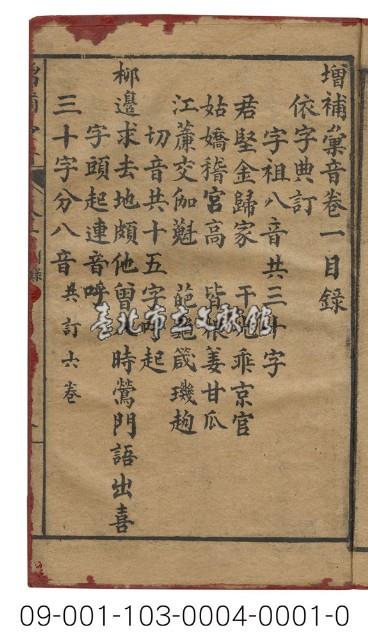 增補彙音卷一目錄
依字典訂
字祖八音共三十字
君堅金歸家 干 乖京官
姑嬌稽宮高 皆 姜甘瓜
江蘪交伽 葩 箴璣趜
切音共十五字 起
柳邊求去地頗他曾入時鶯門語出喜
字頭起連音呼
三十字分八音共訂六卷
臺北市立文獻館
09-001-103-0004-0001-0